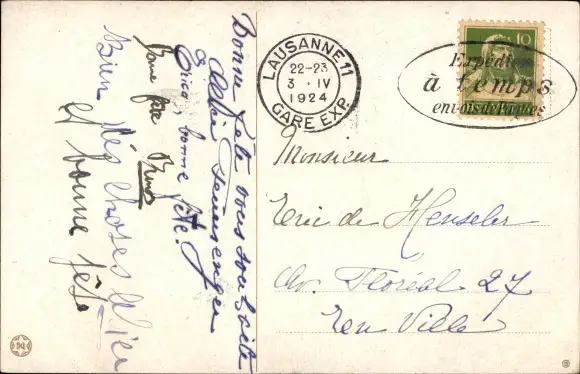 Bonne fête vous souhaite
Erica, bonne fête!
Bonne fête
Bien des choses
et bonne fête
LAUSANNE 11
22-23
3 · IV
1924
GARE EXP.
10
Expédiez
à temps
envois de Pâques
Monsieur
Eric de Henseler
Av. Floréal 27
En Ville